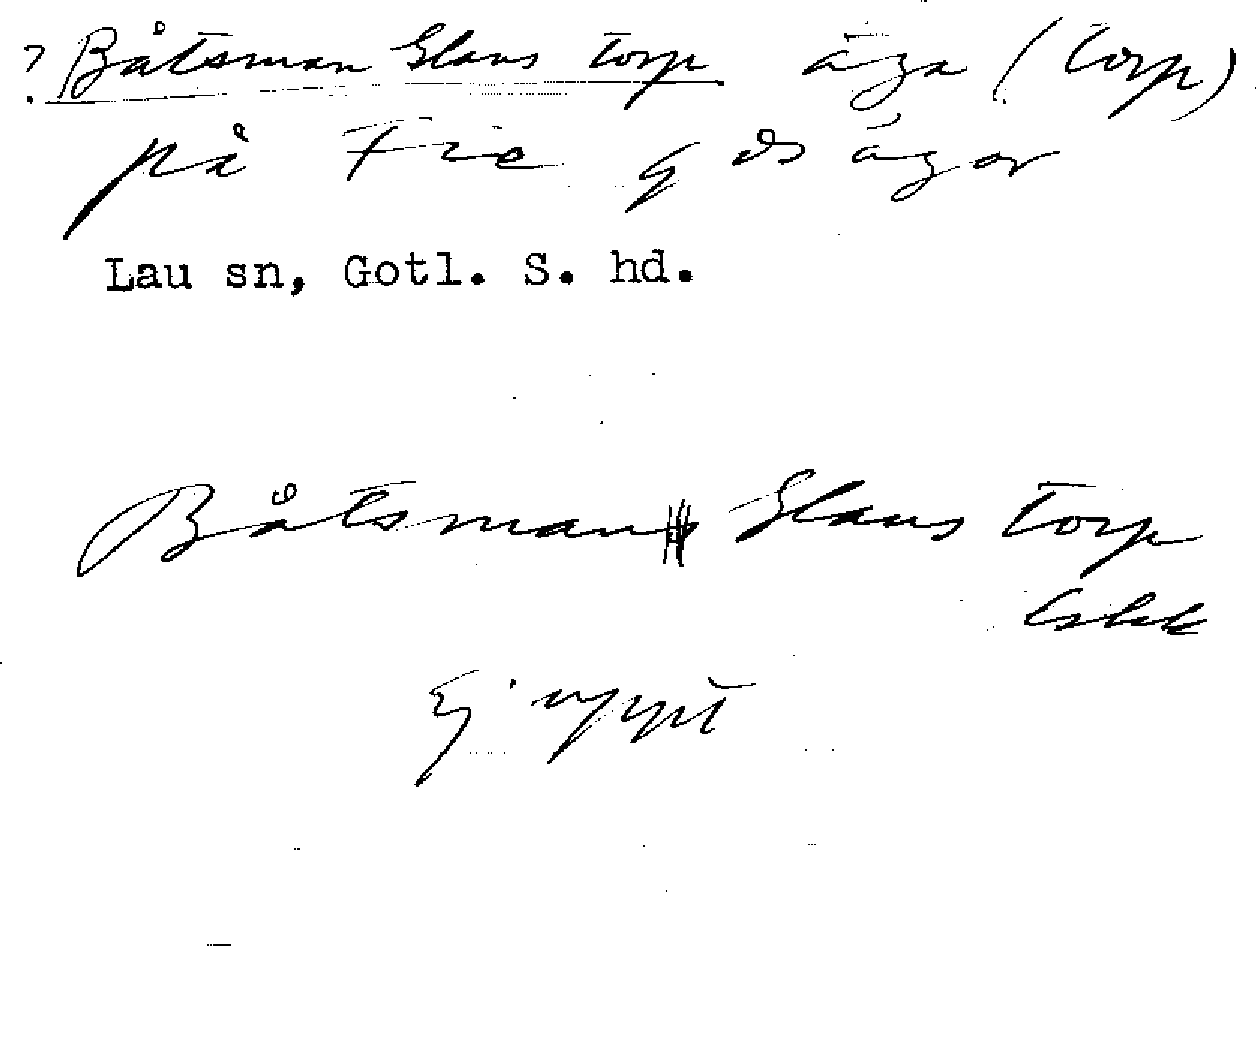 ? Båtsman Glans torp äga (torp)
på Fie gds ägor
Lau sn, Gotl. S. hd.
Båtsman Glans torp
Ej uppt